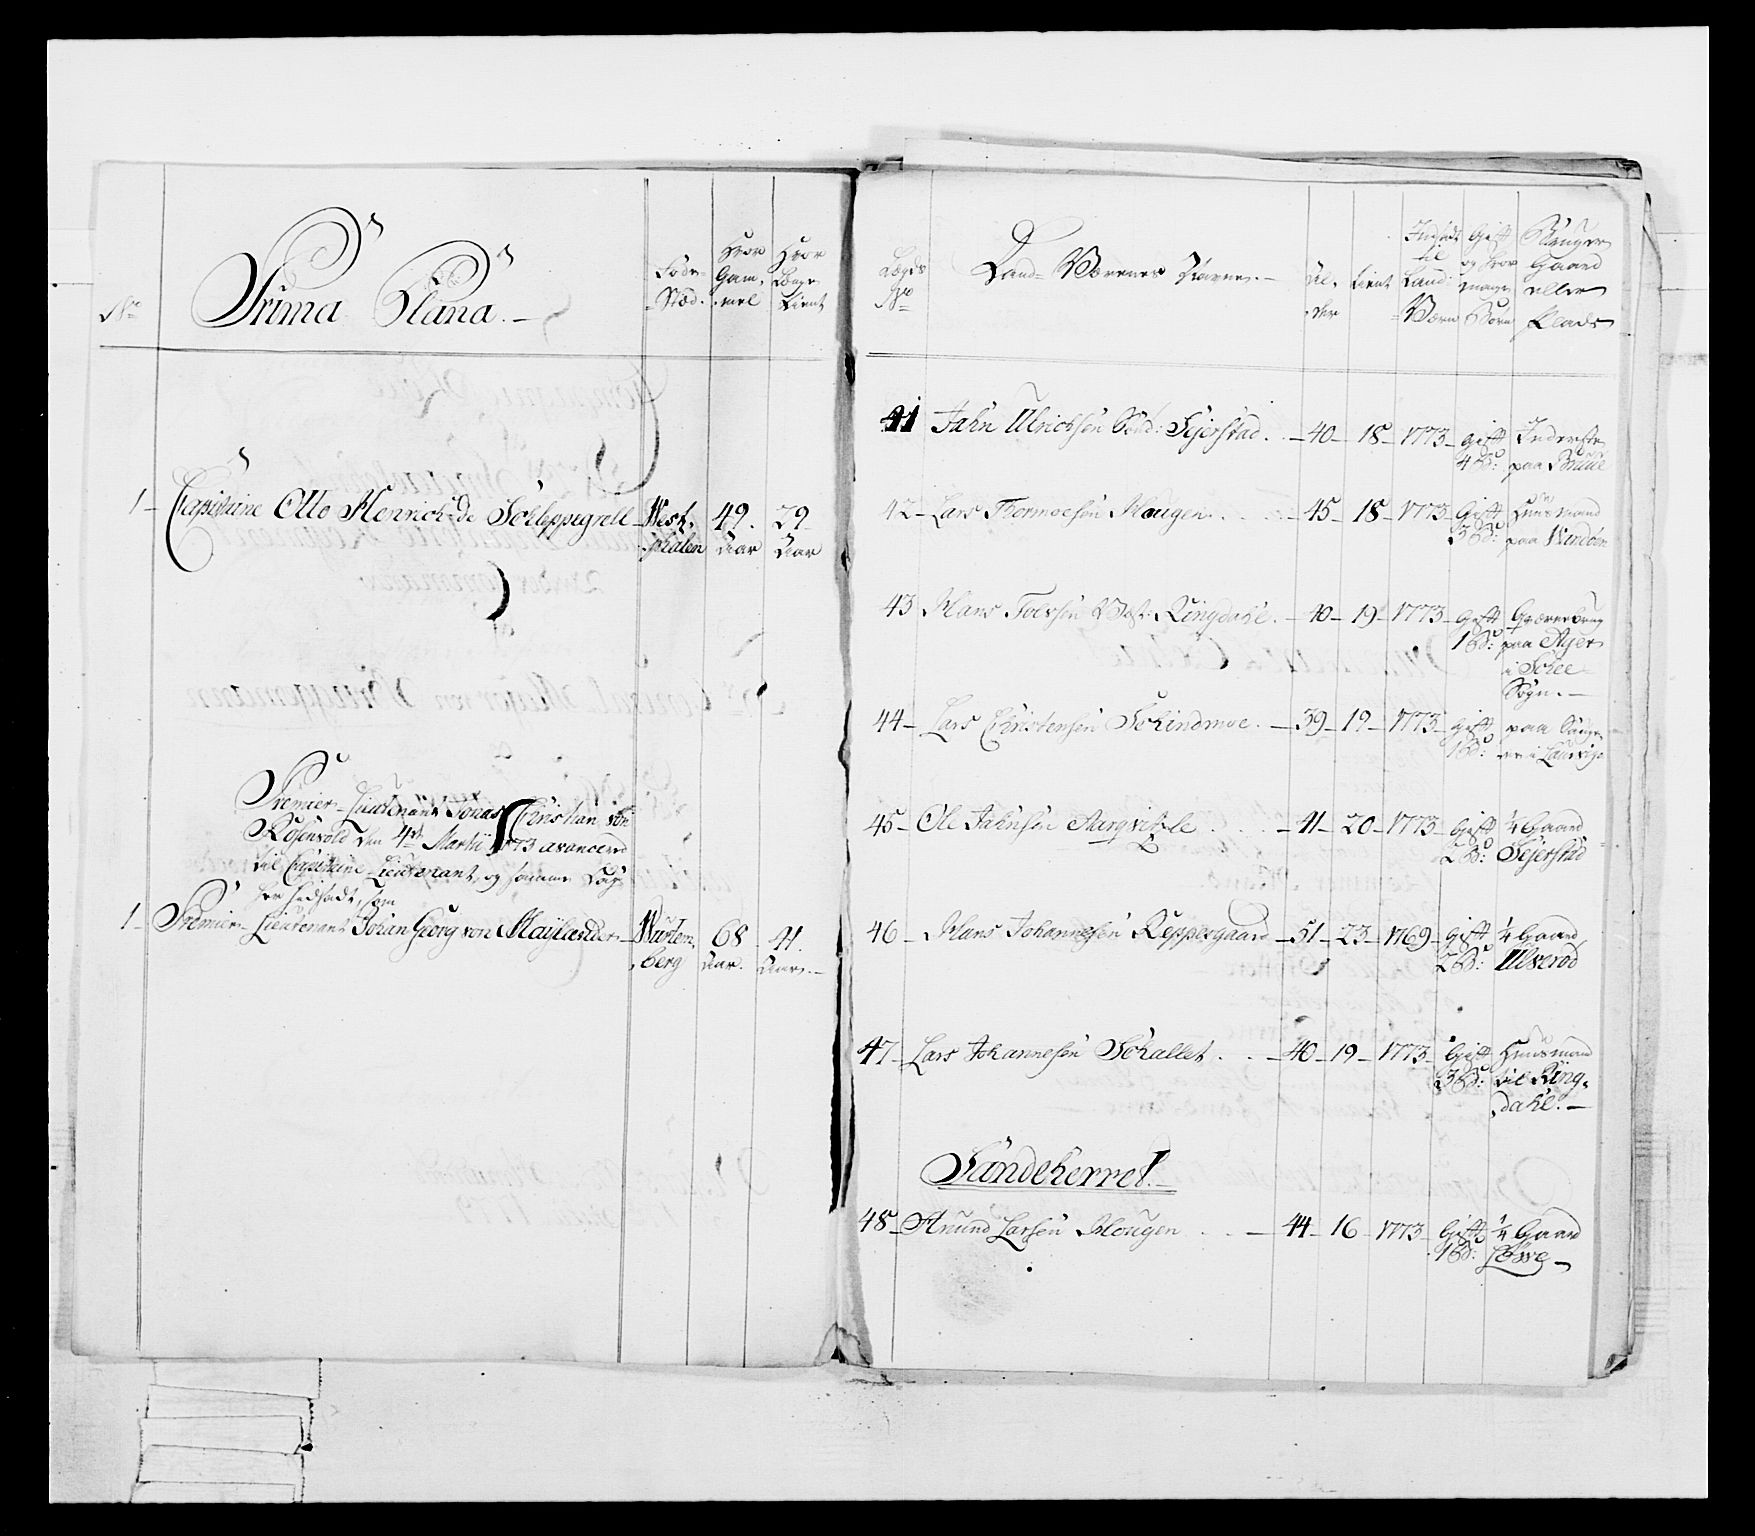 No
Prima Plana.
Føde-
Stæd.
Hvor
Gam-
mel
Hvor
Længe
Tient
1 Capitaine Otto Henrich de Schleppegrell
West-
phalen
49.
Aar
29
Aar
Premier-Lieutenant Jonas Christian von
Rosenvold den 4de Martii 1773 avanceret
til Capitaine-Lieutenant, og sammer Dag
her indsadt, som
1 Premier-Lieutenant Johan Georg von Maylænder
Würtem-
berg
68
Aar.
41.
Aar.
Lægds
No
Land-Værnes Navne.
Al-
der
Tient
Indsadt
til
Land-
Værn
Gift
og hvor
mange
Børn
Bruger
Gaard
eller
Plads
41 Jahn Ulrichsen Sønd: Sejerstad. 40 18 1773 gift Inderste
4 B: paa Brue
42 Lars Thormoesen Hougen. 45 18 1773 Gift Huusmand
3 B: paa
43 Hans Tolvsen Vest: Ringdahl. 40 19 1773 gift Qværnebrug
1 B: paa Ager
i Schee
Sogn.
44 Lars Christensen Schindmoe. 39 19 1773 gift paa
1 B: i Laurvig
45 Ole Jahnsen 41 20 1773 gift 1/4 Gaard
2 B: Sejerstad
46 Hans Johannesen Reppesgaard 51 23 1769 gift 1/4 Gaard
2 B: Ulverød
47 Lars Johannesen Schallet. 40 19 1773 Gift Huusmand
3 B: til Ring-
dahl.
Sandeherret.
48 Anund Larsen Hougen 44 16 1773 Gift 1/4 Gaard
1 B: